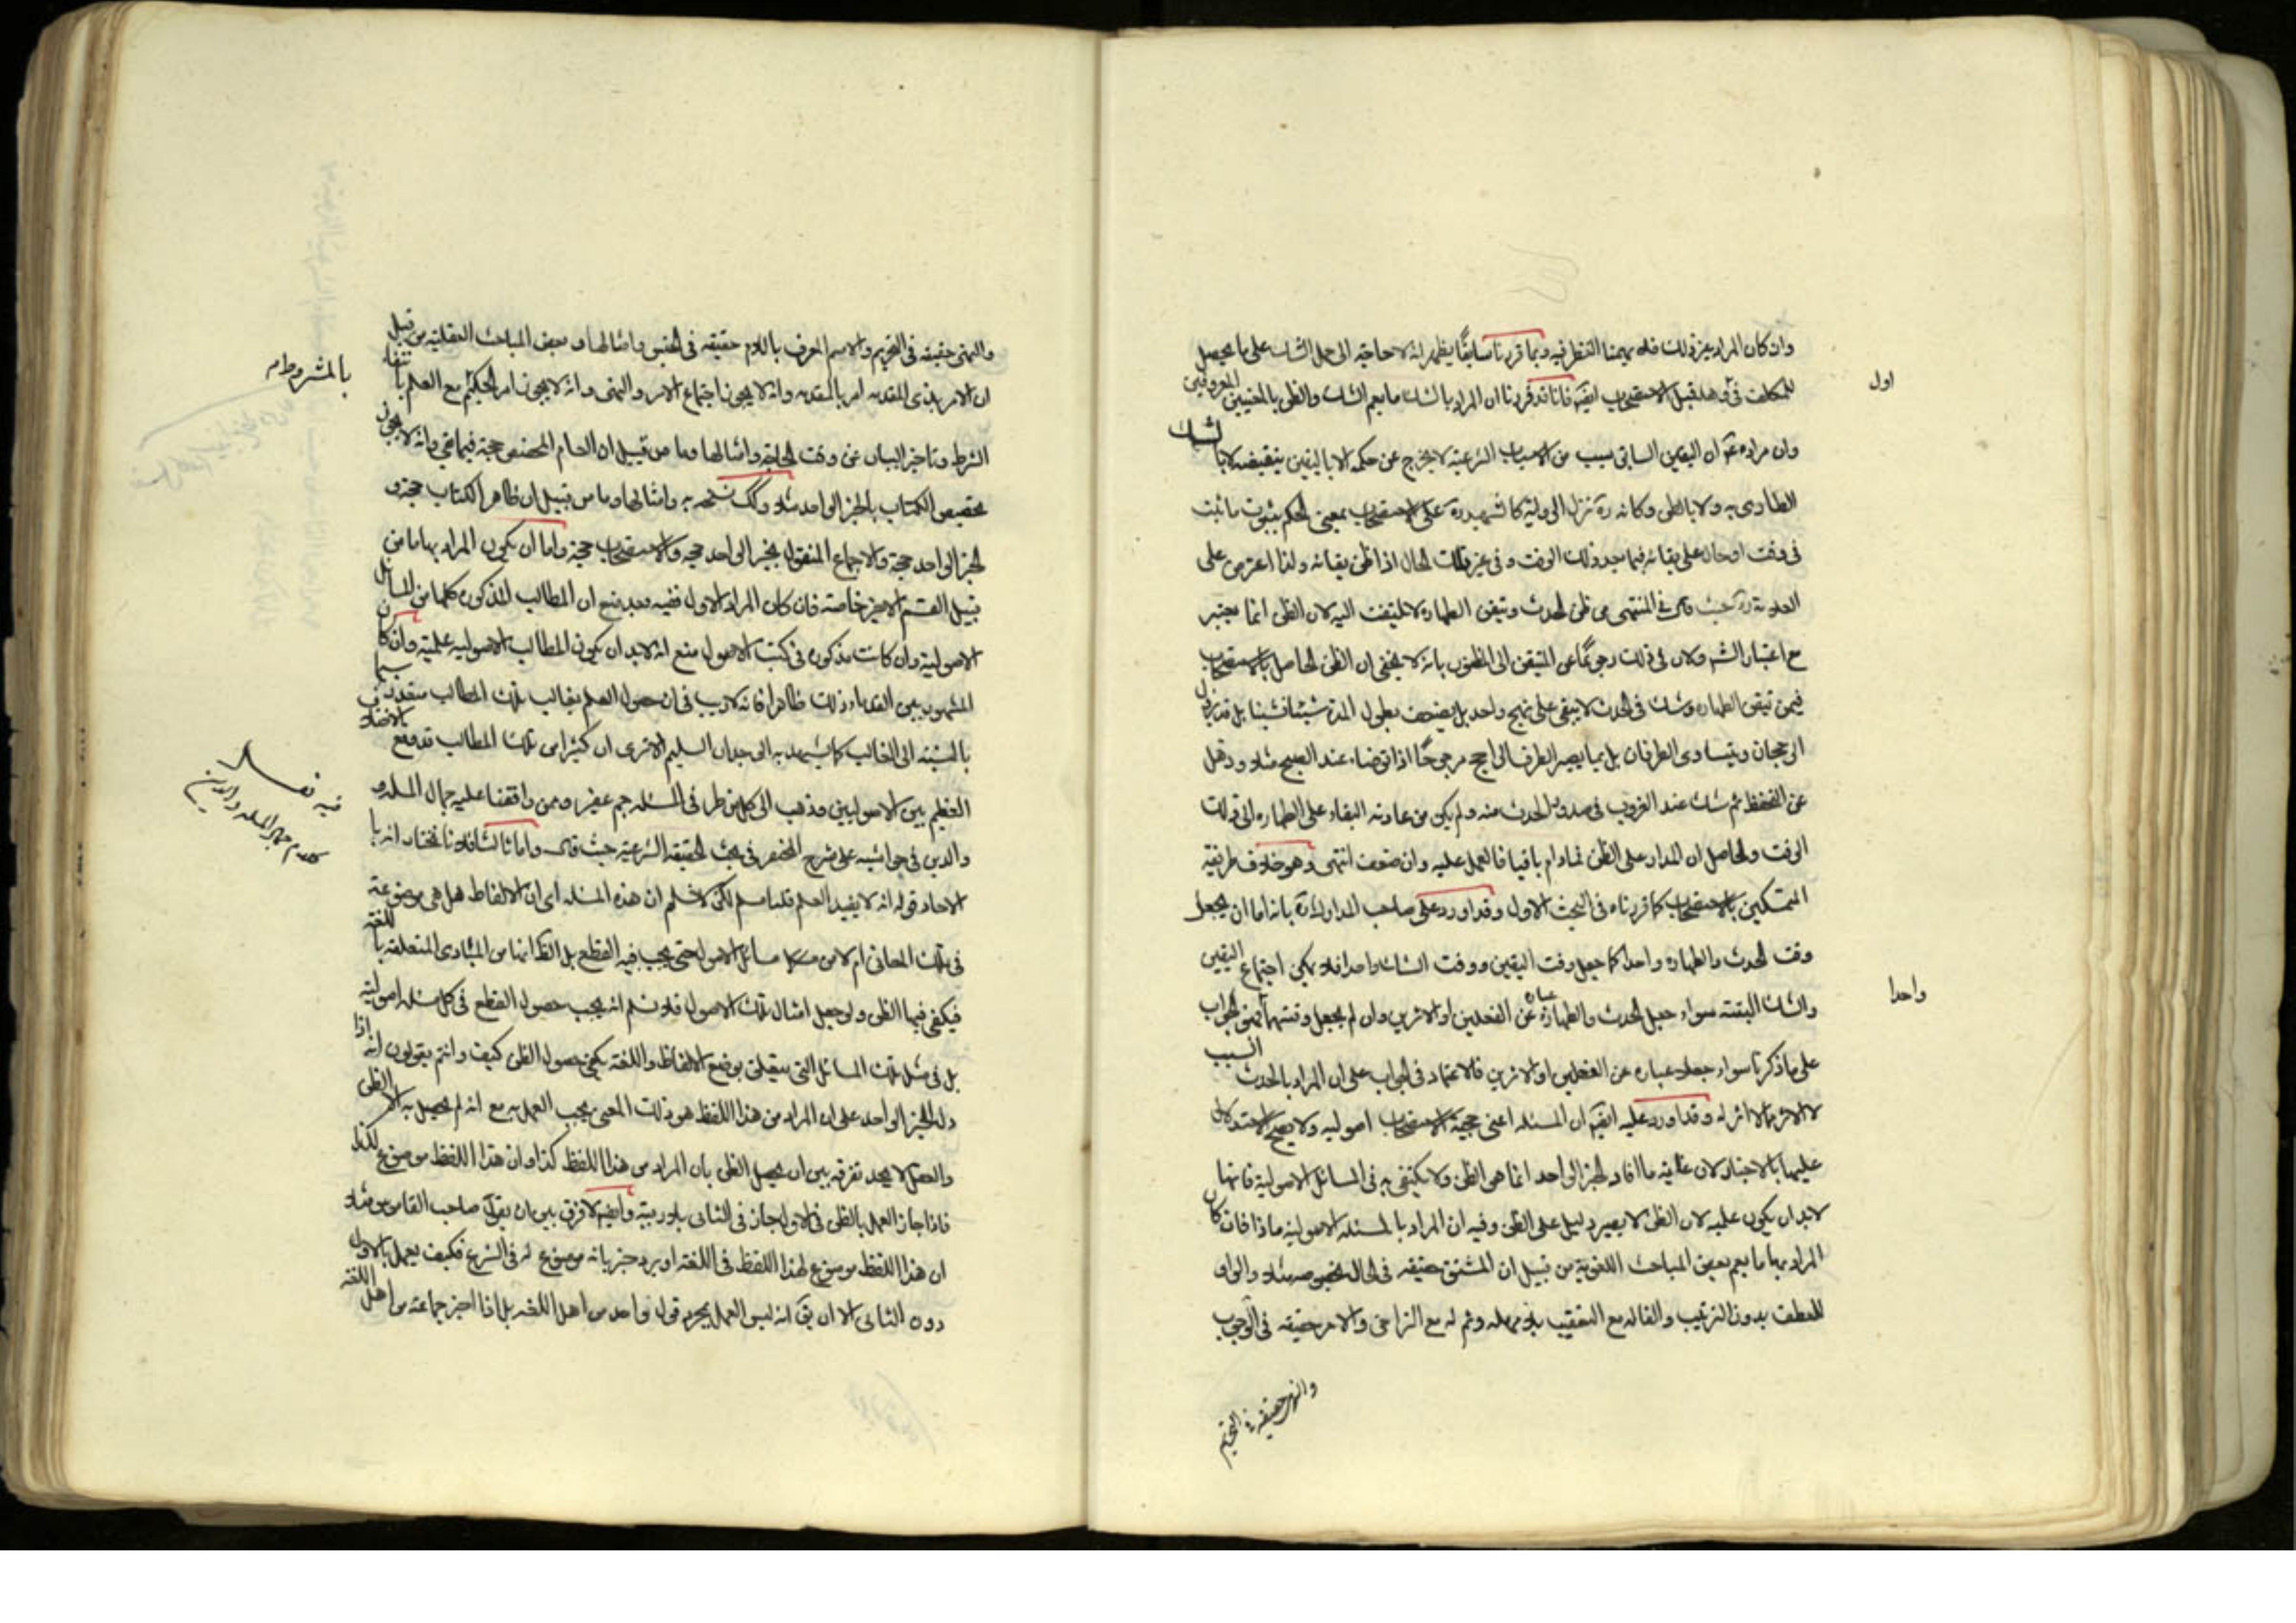 وان كان المراد غير ذلك فلا يهمنا النظر فيه وبما قررنا سابقًا يظهر انه لا حاجة الى حمل الشك على ما يحصل
للمكلف في اول وهلة قبل الاستصحاب ايضا فانا قد قررنا ان المراد بالشك ما يعم الشك والظن بالمعنيين المعروفين
وان مراده ان اليقين السابق بسبب من الاسباب الشرعية لا يخرج عن حكمه الا باليقين بنقيضه لا بالشك
الطارى به ولا بالظن وكانه ره نزل الرواية كالشهيد ره على الاستصحاب بمعنى الحكم بثبوت ما ثبت
في وقت او حال على بقائه فيما بعد ذلك الوقت وفي غير تلك الحال اذا ظن بقائه ولذا اعترض على
العلامة ره حيث قال في المنتهى من ظن الحدث وتيقن الطهارة لا يلتفت اليه لان الظن انما يعتبر
مع اعتبار الشرع ولان في ذلك رجوعًا عن المتيقن الى المظنون بانه لا يخفى ان الظن الحاصل بالاستصحاب
فيمن تيقن الطهارة وشك في الحدث لا يبقى على نهج واحد بل يضعف بطول المدة شيئا فشيئا بل قد يزول
الرجحان ويتساوى الطرفان بل ربما يصير الطرف الراجح مرجوحًا اذا توضاء عند الصبح مثلا وذهل
عن التحفظ ثم شك عند الغروب في صدور الحدث منه ولم يكن من عادته البقاء على الطهارة الى ذلك
الوقت والحاصل ان المدار على الظن فما دام باقيا فالعمل عليه وان ضعف انتهى وهو خلاف طريقة
المتمسكين بالاستصحاب كما قررناه في البحث الاول وقد اورد على صاحب المدارك ره بانه اما ان يجعل
وقت الحدث والطهارة واحدا كما جعل وقت اليقين ووقت الشك واحدا فلا يمكن اجتماع اليقين
والشك البتة سواء جعل الحدث والطهارة عبارة عن الفعلين او الاثرين وان لم يجعل وقتهما واحدا فيصح الجواب
على ما ذكرنا سواء جعلا عبارة عن الفعلين او الاثرين فالاعتماد في الجواب على ان المراد بالحدث السبب
لا الاثر مما لا اثر له وقد اورد عليه ايضا ان المسئلة اعني حجية الاستصحاب اصولية ولا يصح الاستدلال
عليها بالاخبار لان غاية ما افاد الخبر الواحد انما هو الظن ولا يكتفى به في المسائل الاصولية فانها
لابد ان يكون علمية لان الظن لا يصير دليل على الظن وفيه ان المراد بالمسئلة الاصولية ماذا فان كان
المراد بها ما يعم بعض المباحث اللغوية من قبيل ان المشتق حقيقة في الحال بخصوصه مثلا والواو
للعطف بدون الترتيب والفاء له مع التعقيب بلا مهلة وثم له مع التراخي والامر حقيقة في الوجوب
والنهي حقيقة في التحريم
اول
واحدا
والنهي حقيقة في التحريم والاسم المعرف باللام حقيقة في الجنس وامثالها و بعض المباحث العقلية من قبيل
ان الامر بذي المقدمة امر بالمقدمة وانه لا يجوز اجتماع الامر والنهي وانه لا يجوز امر الحكيم مع العلم بانتفاء
الشرط وتاخير البيان عن وقت الحاجة وامثالها وما من قبيل ان العام المخصص حجة فيما بقي وانه لا يجوز
تخصيص الكتاب بالخبر الواحد مثلا وامثالها وما من قبيل ان ظاهر الكتاب حجة و
الخبر الواحد حجة والاجماع المنقول بخبر الواحد حجة والاستصحاب حجة واما ان يكون المراد بها ما من
قبيل القسم الاخير خاصة فان كان المراد الاول ففيه بعد منع ان المطالب المذكورة كلها من المسائل
الاصولية وان كانت مذكورة في كتب الاصول منع انه لابد ان يكون المطالب الاصولية علمية وان كان
المشهور بين القدماء ذلك ظاهرا فانه لا ريب في ان حصول العلم بغالب تلك المطالب متعذر سيما
بالنسبة الى الغالب كما يشهد به الوجدان السليم الا ترى ان كثيرا من تلك المطالب قد وقع فيه الاختلاف
العظيم بين الاصوليين وذهب الى كل من طرفي المسئلة جم غفير وممن وافقنا عليه جمال الملة و
والدين في حواشيه على شرح المختصر في بحث الحقيقة الشرعية حيث قال واما ثالثا فلانا نختار انه با
الاحاد قوله انه لا يفيد العلم قلنا مسلم لكن لا نسلم ان هذه المسئلة اى ان الالفاظ هل هي موضوعة
في تلك المعاني ام لا من مسائل الاصول حتى يجب فيه القطع بل الظ انها من المبادى المتعلقة باللغة
فيكفي فيها الظن ولو جعل امثال تلك الاصول فلا نسلم انه يجب حصول القطع في كل مسئلة اصولية
بل في مثل تلك المسائل التي يتعلق بوضع الالفاظ واللغة يكفي حصول الظن كيف وانتم يقولون انه اذا
دل الخبر الواحد على ان المراد من هذا اللفظ هو ذلك المعنى يجب العمل به مع انه لم يحصل به الا الظن
والعقل لا يجد تفرقة بين ان يحصل الظن بان المراد من هذا اللفظ كذا وان هذا اللفظ موضوع لكذا
فاذا جاز العمل بالظن في الاول جاز في الثاني بلا ريبة وايضا لا فرق بين ان يقول صاحب القاموس مثلا
ان هذا اللفظ موضوع لهذا اللفظ في اللغة او يرد خبر بانه موضوع له في الشرع فكيف يعمل بالاول
دون الثاني الا ان يق انه ليس العمل بمجرد قول واحد من اهل اللغة بل اذا اخبر جماعة من اهل اللغة
بالمشروط
فيه نقل
كلام جمال الملة والدين